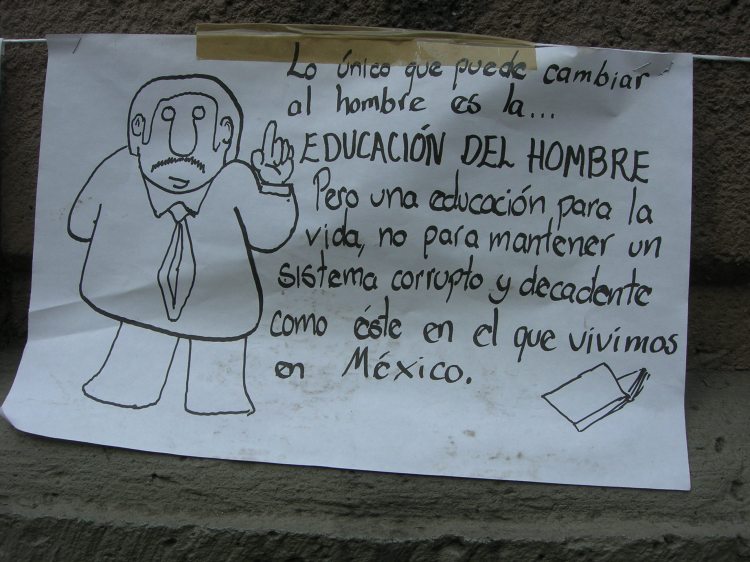 Lo único que puede cambiar
al hombre es la...
EDUCACIÓN DEL HOMBRE
Pero una educación para la
vida, no para mantener un
sistema corrupto y decadente
como éste en el que vivimos
en México.